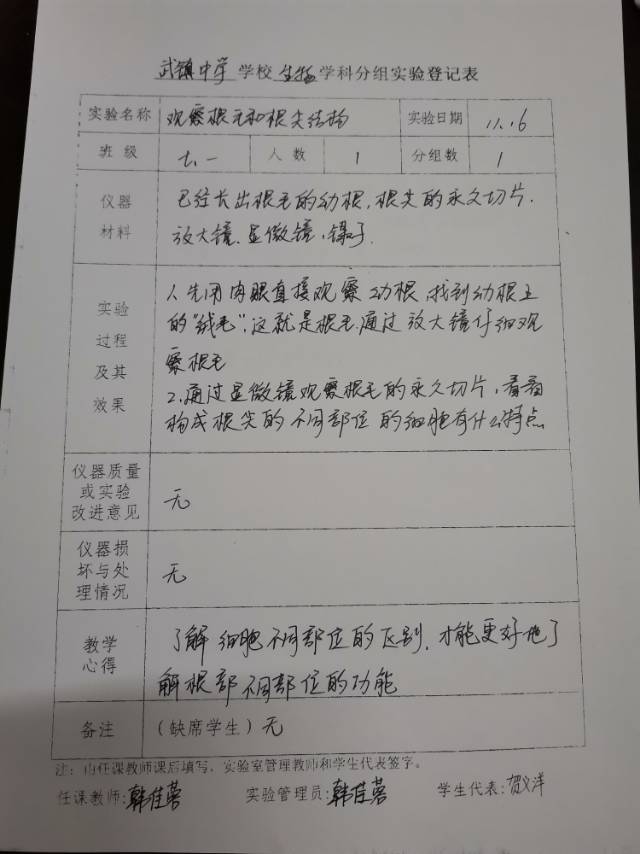 武镇中学学校生物学科分组实验登记表
实验名称 观察根毛和根尖结构 实验日期 11.16
班级 七.一 人数 1 分组数 1
仪器材料 已经长出根毛的幼根，根尖的永久切片.
放大镜.显微镜，镊子.
实验过程及其效果 1、先用肉眼直接观察幼根 找到幼根上
的"绒毛".这就是根毛.通过放大镜仔细观
察根毛
2.通过显微镜观察根毛的永久切片，看看
构成根尖的不同部位的细胞有什么特点
仪器质量或实验改进意见 无
仪器损坏与处理情况 无
教学心得 了解细胞不同部位的区别.才能更好地了
解根部不同部位的功能
备注 （缺席学生）无
注：由任课教师课后填写，实验室管理教师和学生代表签字。
任课教师:韩佳蓉 实验管理员:韩佳蓉 学生代表:贺义洋